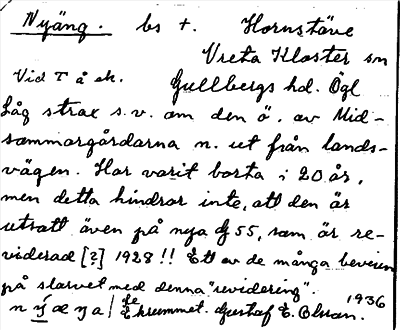 Nyäng. bs +. Hornstäve
Vreta Kloster sn
Vid T å ek. Gullbergs hd. Ögl
Låg strax s.v. om den ö. av Mid-
sommargårdarna n. ut från lands-
vägen. Har varit borta i 20 år,
men detta hindrar inte, att den är
utsatt även på nya 55, som är re-
viderad [?] 1928!! Ett av de många bevisen
på slarvet med denna "revidering".
1936
Gustaf E. Olsson.